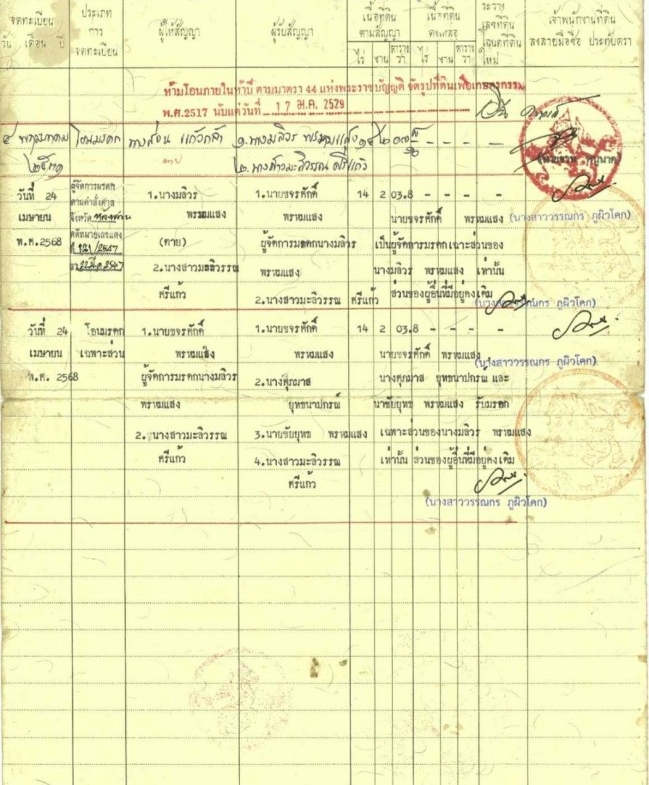 จดทะเบียน
วัน เดือน ปี
ประเภท
การ
จดทะเบียน
ผู้ให้สัญญา
ผู้รับสัญญา
เนื้อที่ดิน
ตามสัญญา
ไร่ งาน ตาราง
วา
เนื้อที่ดิน
คงเหลือ
ไร่ งาน ตาราง
วา
ระวาง
เลขที่ดิน
โฉนดที่ดิน
ใหม่
เจ้าพนักงานที่ดิน
ลงลายมือชื่อ ประทับตรา
ห้ามโอนภายในห้าปี ตามมาตรา 44 แห่งพระราชบัญญัติ จัดรูปที่ดินเพื่อเกษตรกรรม
พ.ศ.2517 นับแต่วันที่ 17 ม.ค. 2529
๒๕๓๑
โอนมรดก
นางสอน แก้วกล้า
ตาย
๑. นางมลิวร พรหมแสง
๑๔ ๒ ๐๓ - - - -
๒. นางสาวมะลิวรรณ ศรีแก้ว
วันที่ 24
เมษายน
พ.ศ.2568
ผู้จัดการมรดก
ตามคำสั่งศาล
จังหวัด
คดีหมายเลขแดง
1.นางมลิวร
พรหมแสง
(ตาย)
2.นางสาวมะลิวรรณ
ศรีแก้ว
1.นายขจรศักดิ์
พรหมแสง
ผู้จัดการมรดกนางมลิวร
พรหมแสง
2.นางสาวมะลิวรรณ ศรีแก้ว
14 2 03.8 - - - -
นายขจรศักดิ์ พรหมแสง
เป็นผู้จัดการมรดกเฉพาะส่วนของ
นางมลิวร พรหมแสง เท่านั้น
ส่วนของผู้อื่นที่มีอยู่คงเดิม
(นางสาววรรณกร ภูผิวโคก)
(นางสาววรรณกร ภูผิวโคก)
วันที่ 24
เมษายน
พ.ศ. 2568
โอนมรดก
เฉพาะส่วน
1.นายขจรศักดิ์
พรหมแสง
ผู้จัดการมรดกนางมลิวร
พรหมแสง
2.นางสาวมะลิวรรณ
ศรีแก้ว
1.นายขจรศักดิ์
พรหมแสง
2.นางศุภมาส
ยุทธนาปกรณ์
3.นายชัยยุทธ พรหมแสง
4.นางสาวมะลิวรรณ
ศรีแก้ว
14 2 03.8 - - - -
นายขจรศักดิ์ พรหมแสง
นางศุภมาส ยุทธนาปกรณ์ และ
นายชัยยุทธ พรหมแสง รับมรดก
เฉพาะส่วนของนางมลิวร พรหมแสง
เท่านั้น ส่วนของผู้อื่นที่มีอยู่คงเดิม
(นางสาววรรณกร ภูผิวโคก)
(นางสาววรรณกร ภูผิวโคก)